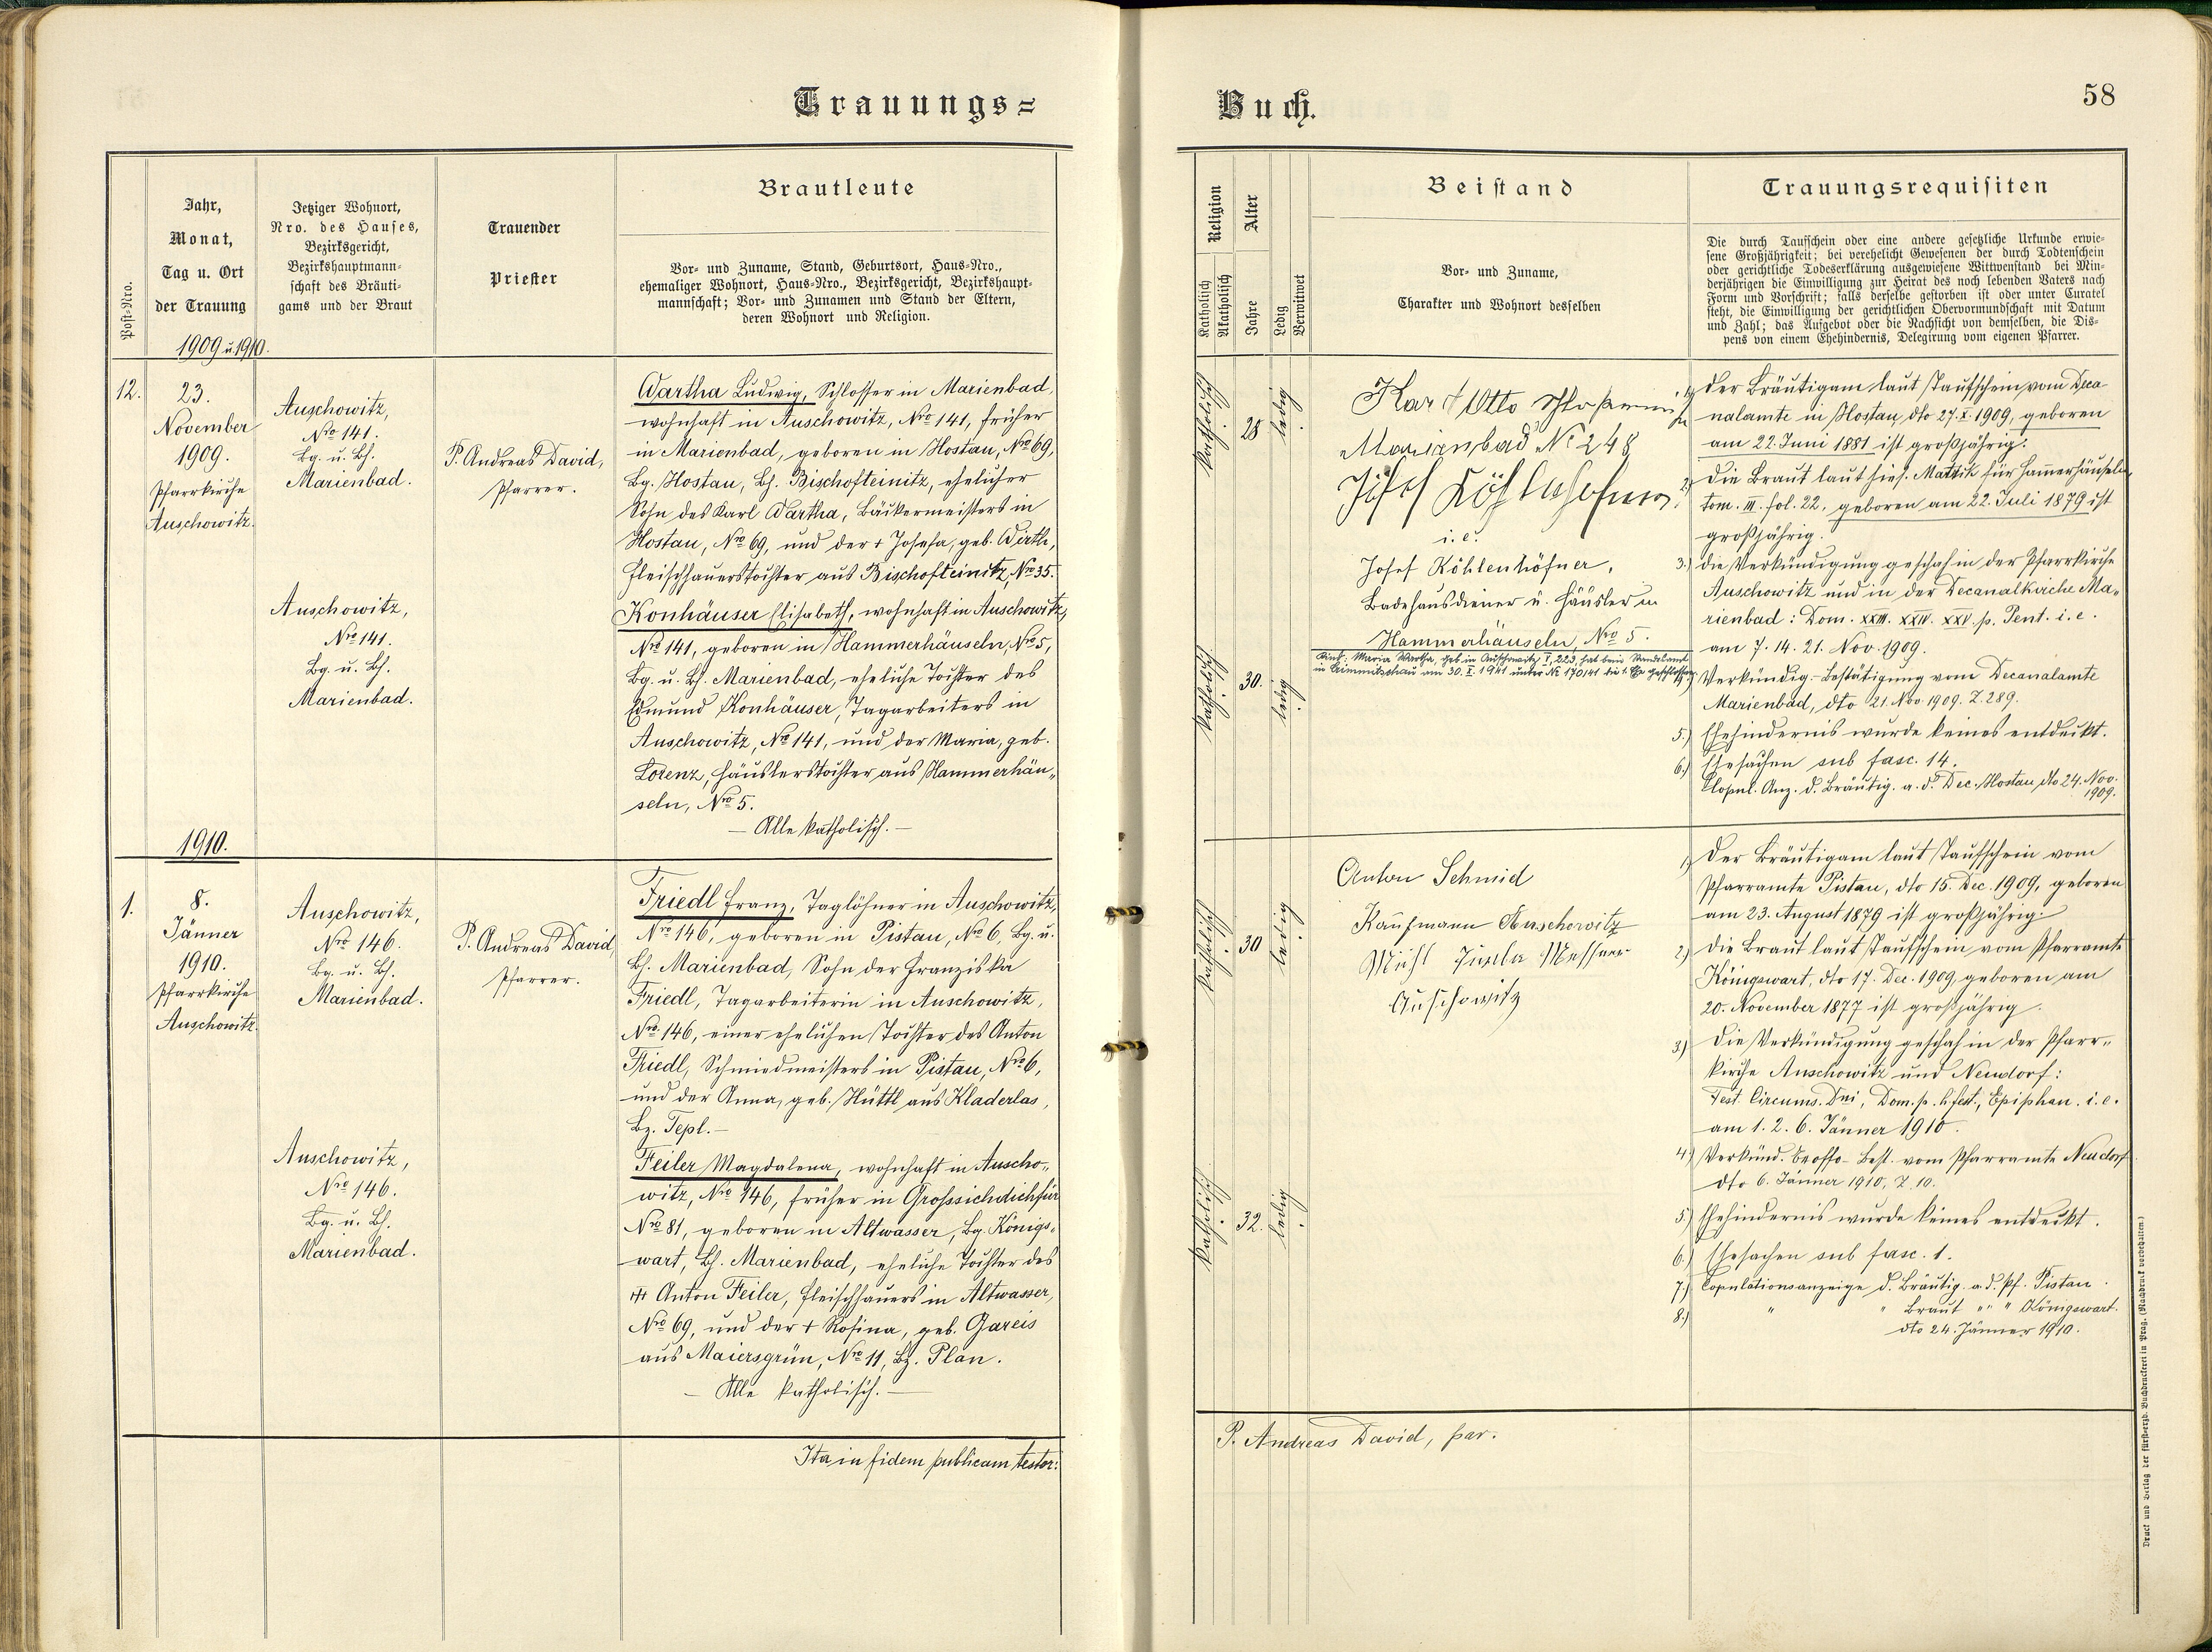 Trauungs=
Post-Nro.
Jahr,
Monat,
Tag u. Ort
der Trauung
Jetziger Wohnort,
Nro. des Hauses,
Bezirksgericht,
Bezirkshauptmann-
schaft des Bräuti-
gams und der Braut
Trauender
Priester
Brautleute
Vor- und Zuname, Stand, Geburtsort, Haus-Nro.,
ehemaliger Wohnort, Haus-Nro., Bezirksgericht, Bezirkshaupt-
mannschaft; Vor- und Zunamen und Stand der Eltern,
deren Wohnort und Religion.
1909 u. 1910.
12.
23.
November
1909.
Pfarrkirche
Auschowitz.
Auschowitz,
Nro 141.
Bg. u. Bh.
Marienbad.
P. Andreas David,
Pfarrer.
Wartha Ludwig, Schlosser in Marienbad,
wohnhaft in Auschowitz, Nro 141, früher
in Marienbad, geboren in Hostau, Nro 69,
Bg. Hostau, Bh. Bischofteinitz, ehelicher
Sohn des Karl Wartha, Bäckermeisters in
Hostau, Nro 69, und der + Josefa, geb. Wirth,
Fleischhauerstochter aus Bischofteinitz, Nro 35.
Auschowitz,
Nro 141.
Bg. u. Bh.
Marienbad.
Konhäuser Elisabeth, wohnhaft in Auschowitz,
Nro 141, geboren in Hammerhäuseln, Nro 5,
Bg. u. Bh. Marienbad, eheliche Tochter des
Edmund Konhäuser, Tagarbeiters in
Auschowitz, Nro 141, und der Maria, geb.
Lorenz, Häuslerstochter aus Hammerhäu„
seln, Nro 5.
— Alle katholisch. —
1910.
1.
8.
Jänner
1910.
Pfarrkirche
Auschowitz.
Auschowitz,
Nro 146.
Bg. u. Bh.
Marienbad.
P. Andreas David,
Pfarrer.
Friedl Franz, Taglöhner in Auschowitz,
Nro 146, geboren in Pistau, Nro 6, Bg. u.
Bh. Marienbad, Sohn der Franziska
Friedl, Tagarbeiterin in Auschowitz,
Nro 146, einer ehelichen Tochter des Anton
Friedl, Schmiedmeisters in Pistau, Nro 6,
und der Anna, geb. Hüttl aus Kladerlas,
Bz. Tepl. —
Auschowitz,
Nro 146.
Bg. u. Bh.
Marienbad.
Feiler Magdalena, wohnhaft in Auscho„
witz, Nro 146, früher in Grossichdichfür
Nro 81, geboren in Altwasser, Bg. Königs„
wart, Bh. Marienbad, eheliche Tochter des
Anton Feiler, Fleischhauers in Altwasser,
Nro 69, und der + Rosina, geb. Gareis
aus Maiersgrün, Nro 11, Bz. Plan.
— Alle katholisch. —
Ita in fidem publicam testor:
Buch.
58
Religion
Katholisch
Akatholisch
Alter
Jahre
Ledig
Verwitwet
Beistand
Vor- und Zuname,
Charakter und Wohnort desselben
Trauungsrequisiten
Die durch Taufschein oder eine andere gesetzliche Urkunde erwie-
sene Großjährigkeit; bei verehelicht Gewesenen der durch Todtenschein
oder gerichtliche Todeserklärung ausgewiesene Wittwenstand bei Min-
derjährigen die Einwilligung zur Heirat des noch lebenden Vaters nach
Form und Vorschrift; falls derselbe gestorben ist oder unter Curatel
steht, die Einwilligung der gerichtlichen Obervormundschaft mit Datum
und Zahl; das Aufgebot oder die Nachsicht von demselben, die Dis-
pens von einem Ehehindernis, Delegirung vom eigenen Pfarrer.
katholisch.
28
ledig.
Karl Otto
Marienbad No 248
i. e.
Josef Köhlenhöfner,
Badehausdiener u. Häusler in
Hammerhäuseln, Nro 5.
Kind: Maria Wartha, geb. in Auschowitz I, 223, hat beim Standesamt
in Crimmitschau am 30. X. 1941 unter No 170/41 die 1. Ehe geschlossen
katholisch.
30.
ledig.
1.) Der Bräutigam laut Taufschein vom Deca-
nalamte in Hostau, dto 27. X. 1909, geboren
am 22. Juni 1881 ist großjährig.
2.) Die Braut laut hies. Matrik für Hammerhäuseln,
tom. III. fol. 22. geboren am 22. Juli 1879 ist
großjährig.
3.) Die Verkündigung geschah in der Pfarrkirche
Auschowitz und in der Decanalkirche Ma„
rienbad: Dom. XXIII. XXIV. XXV. p. Pent. i. e.
am 7. 14. 21. Nov. 1909.
Verkündig-Bestätigung vom Decanalamte
Marienbad, dto 21. Nov. 1909. Z. 289.
5.) Ehehindernis wurde keines entdeckt.
6.) Ehesachen sub fasc. 14.
Copul. Anz. d. Bräutig. a. d. Dec. Hostau, dto 24. Nov.
1909.
katholisch.
30
ledig.
Anton Schmid
Kaufmann Auschowitz
Messner
Auschowitz
katholisch.
32.
ledig.
1.) Der Bräutigam laut Taufschein vom
Pfarramte Pistau, dto 15. Dec. 1909, geboren
am 23. August 1879 ist großjährig.
2.) Die Braut laut Taufschein vom Pfarramte
Königswart, dto 17. Dec. 1909, geboren am
20. November 1877 ist großjährig.
3.) Die Verkündigung geschah in der Pfarr„
kirche Auschowitz und Neudorf:
Fest. Circums. Dni, Dom. p. h. fest., Epiphan. i. e.
am 1. 2. 6. Jänner 1910.
4.) Verkünd. Best. vom Pfarramte Neudorf
dto 6. Jänner 1910, Z. 10.
5.) Ehehindernis wurde keines entdeckt.
6.) Ehesachen sub fasc. 1.
7.) Copulationsanzeige d. Bräutig. a. d. Pf. Pistau.
8.) " " Braut " " " Königswart.
dto 24. Jänner 1910.
P. Andreas David, par.
Druck und Verlag der fürst-erzb. Buchdruckerei in Prag. (Nachdruck vorbehalten.)